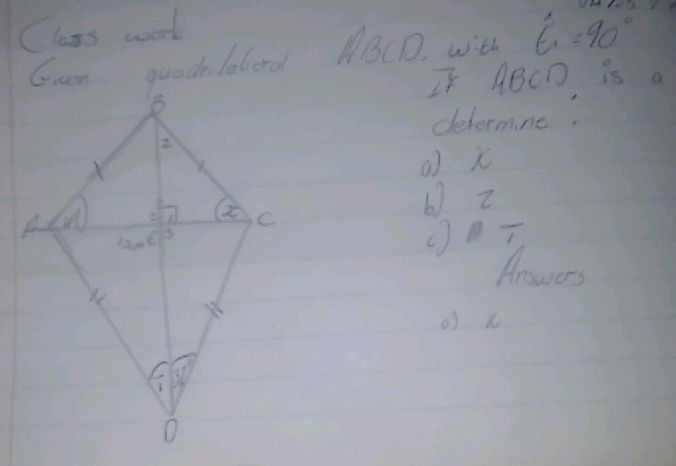 Class work
Given quadrilateral ABCD. with Ê₁ = 90°
If ABCD is a
determine :
a) x
b) z
c) T
Answers
a) x
B
2
A
x
C
1
3
T
D